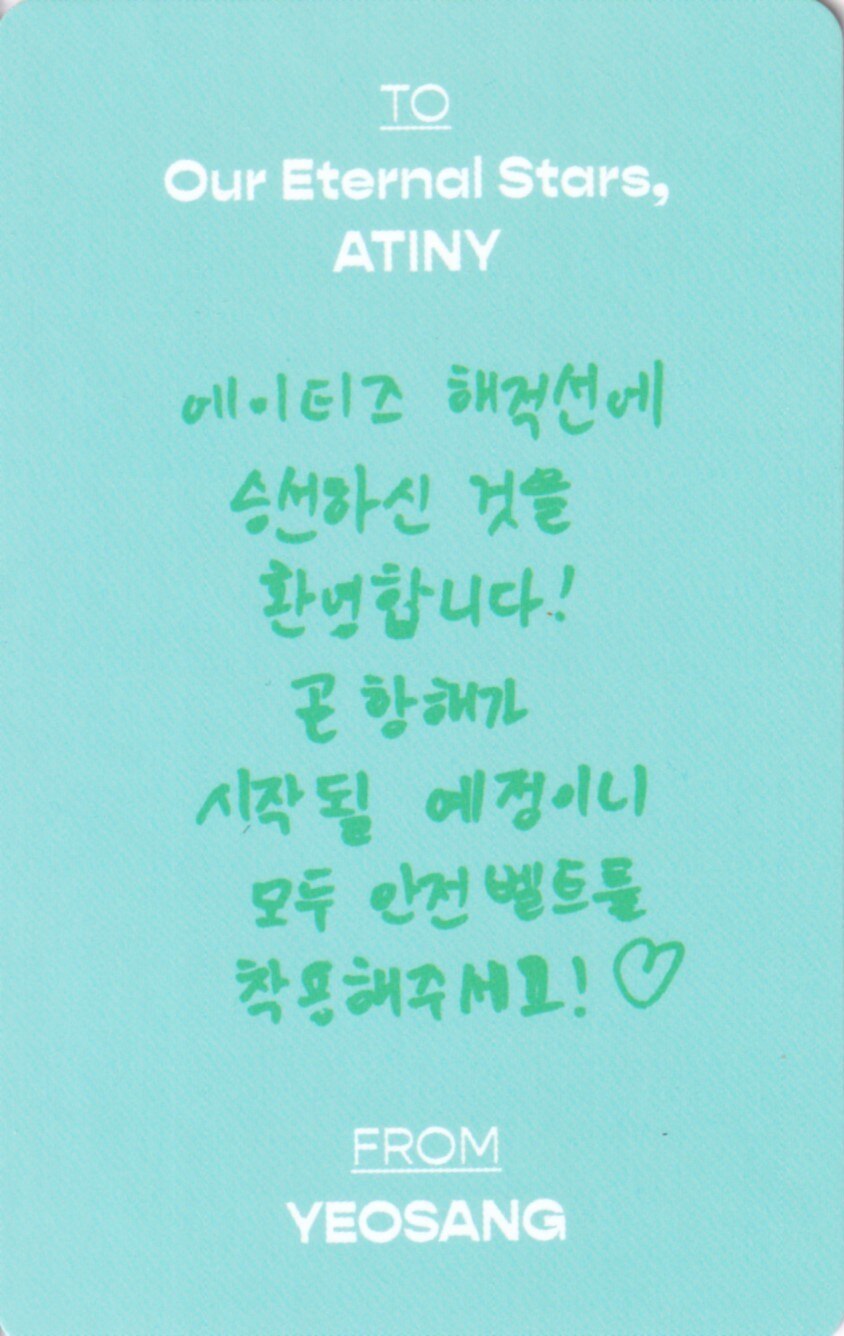 TO
Our Eternal Stars,
ATINY
에이티즈 해적선에
승선하신 것을
환영합니다!
곧 항해가
시작될 예정이니
모두 안전벨트를
착용해주세요! ♡
FROM
YEOSANG